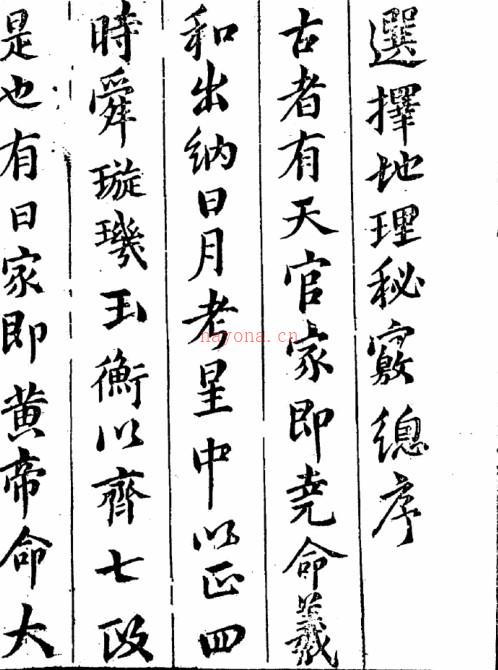 選擇地理秘竅總序
古者有天官家即堯命羲
和出納日月考星中以正四
時舜璇璣玉衡以齊七政
是也有日家即黄帝命大
nayona.cn